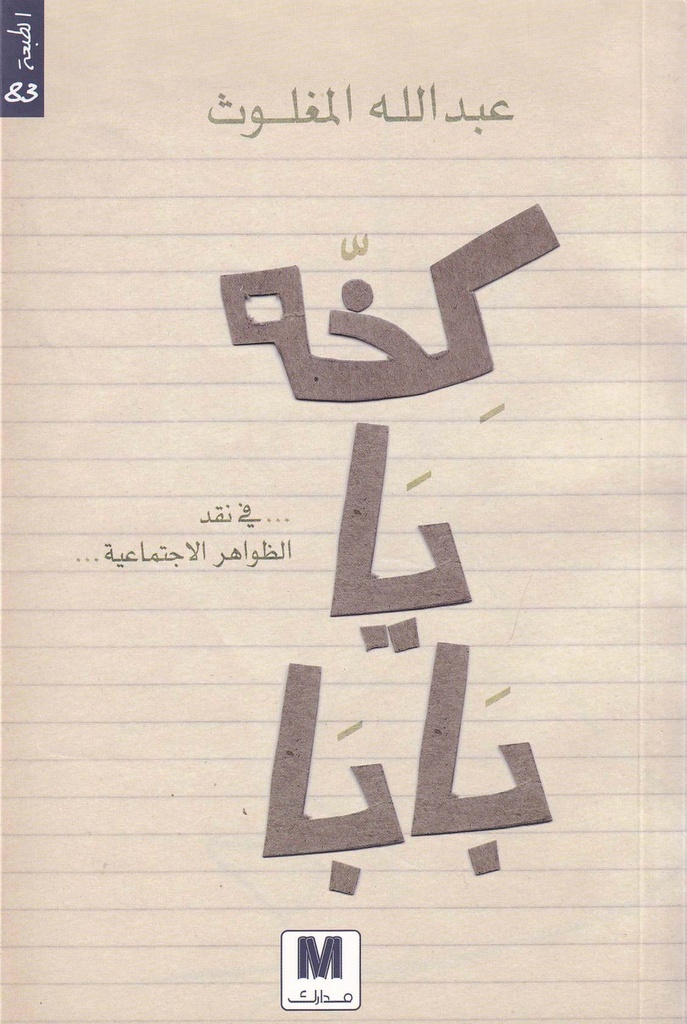 الطبعة 83
عبدالله المغلوث
كِخّه
يَا
بَابَا
...في نقد
الظواهر الاجتماعية...
M
مدارك